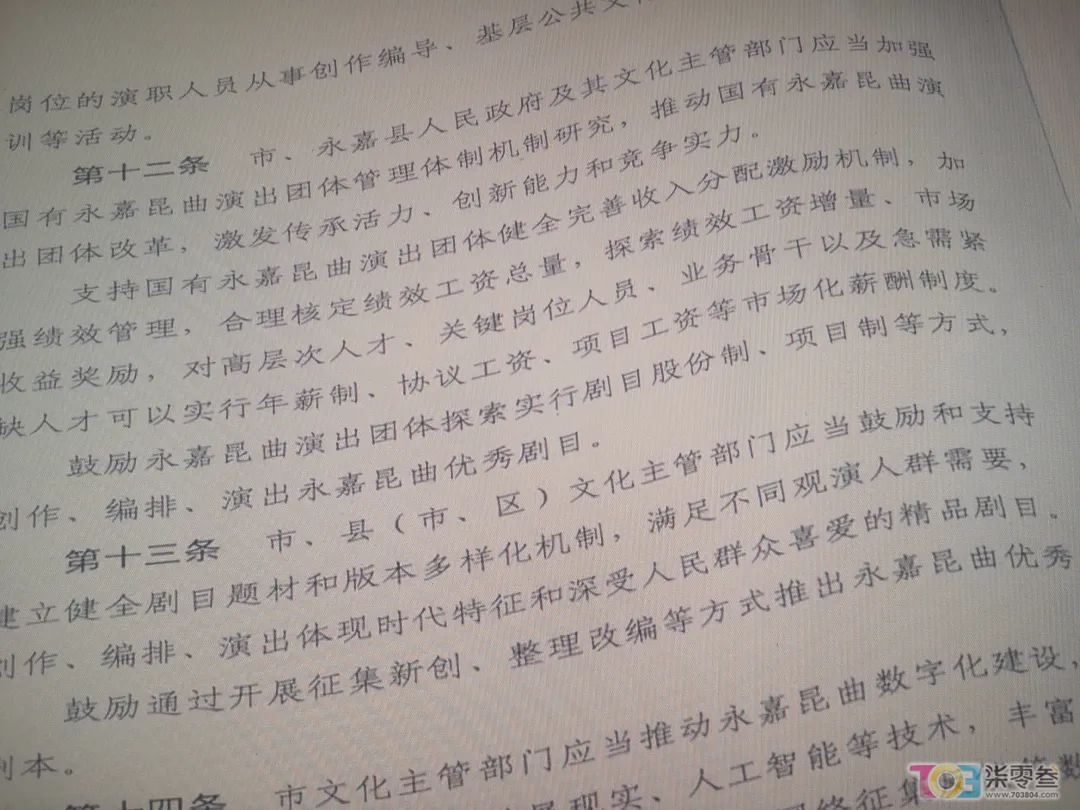 岗位的演职人员从事创作编导、基层公共文
训等活动。
第十二条 市、永嘉县人民政府及其文化主管部门应当加强
国有永嘉昆曲演出团体管理体制机制研究，推动国有永嘉昆曲演
出团体改革，激发传承活力、创新能力和竞争实力。
支持国有永嘉昆曲演出团体健全完善收入分配激励机制，加
强绩效管理，合理核定绩效工资总量，探索绩效工资增量、市场
收益奖励，对高层次人才、关键岗位人员、业务骨干以及急需紧
缺人才可以实行年薪制、协议工资、项目工资等市场化薪酬制度。
鼓励永嘉昆曲演出团体探索实行剧目股份制、项目制等方式，
创作、编排、演出永嘉昆曲优秀剧目。
第十三条 市、县（市、区）文化主管部门应当鼓励和支持
建立健全剧目题材和版本多样化机制，满足不同观演人群需要，
创作、编排、演出体现时代特征和深受人民群众喜爱的精品剧目。
鼓励通过开展征集新创、整理改编等方式推出永嘉昆曲优秀
剧本。
第十四条 市文化主管部门应当推动永嘉昆曲数字化建设，
现实、人工智能等技术，丰富
征集
数
703 柒零叁
www.703804.com